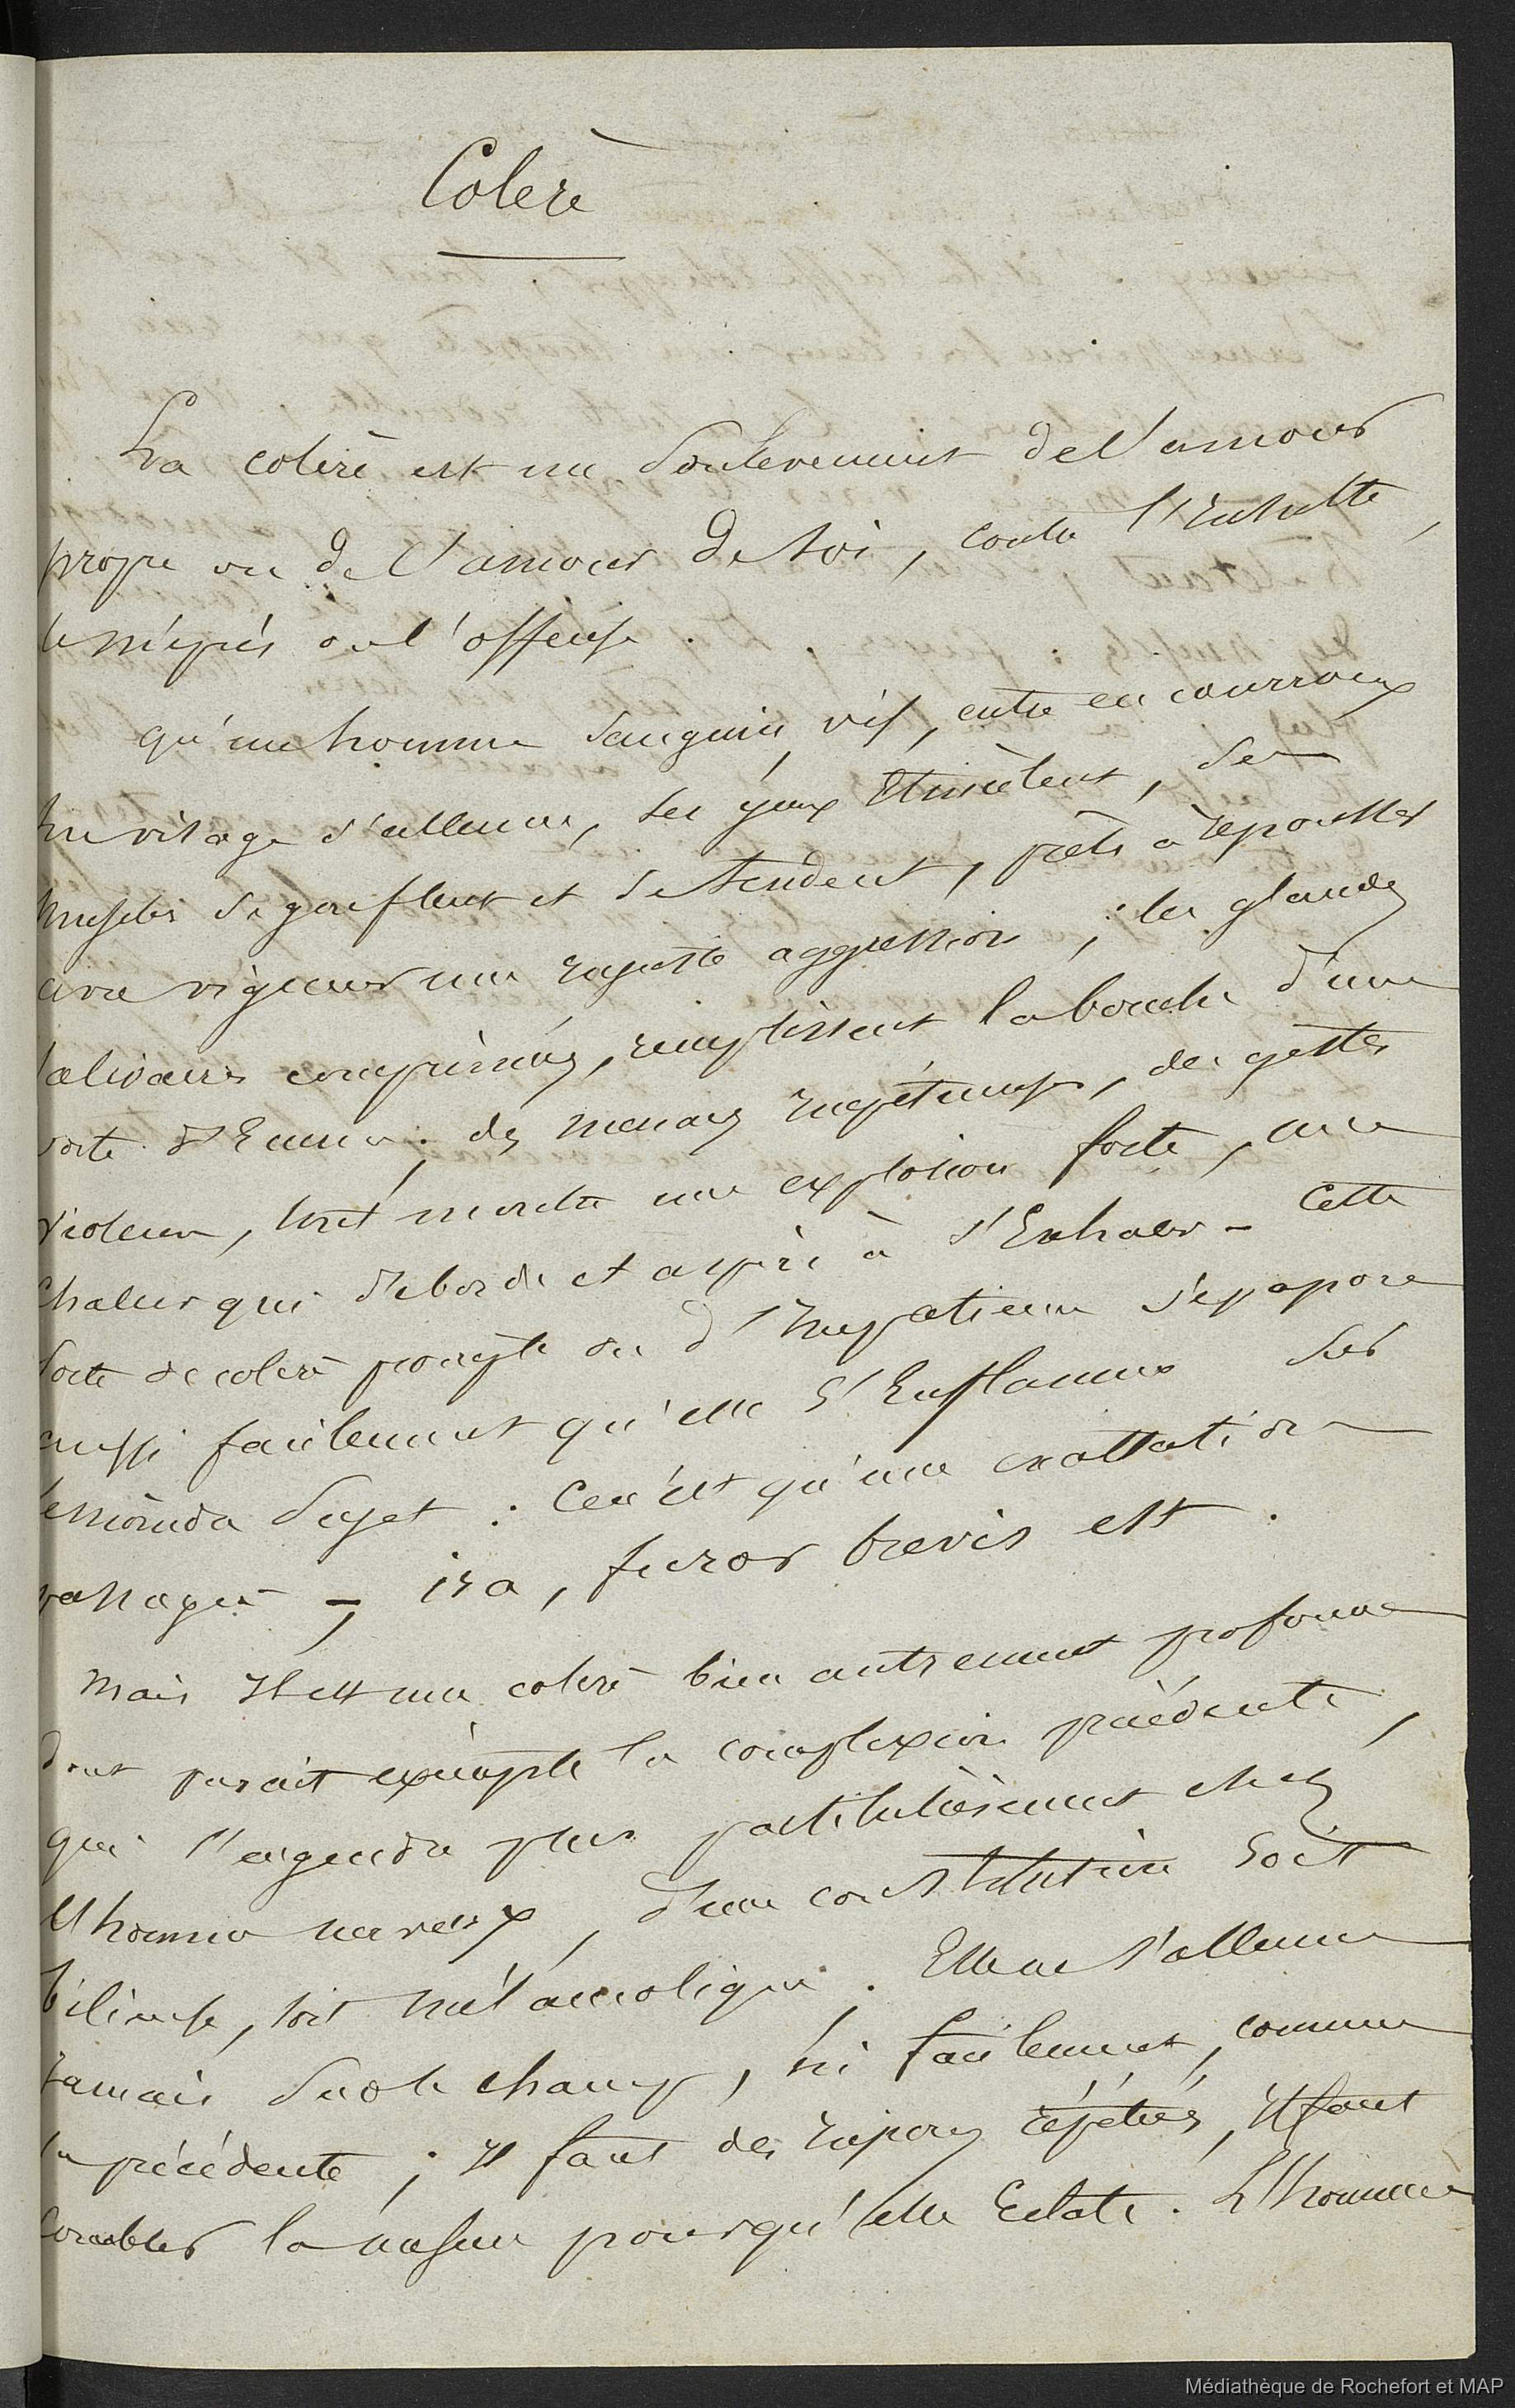 Colère
La colère est un soulèvement de l'amour
propre ou de l'amour de soi, contre l'insulte,
le mépris ou l'offense.
qu'un homme sanguin, vif, entre en courroux
son visage s'allume, ses yeux étincèlent, ses
muscles se gonflent et se tendent, prêts à repousser
avec vigueur une injuste aggression ; les glandes
salivaires comprimées, remplissent la bouche d'une
sorte d'écume ; des menaces impétueuses, des gestes
violens, tout montre une explosion forte, une
chaleur qui déborde et aspire à s'exhaler - Cette
sorte de colère prompte ou d'impatience s'évapore
aussi facilement qu'elle s'enflamme sur
le moindre sujet : Ce n'est qu'une exaltation
passagère - ; ira, furor brevis est.
Mais il est une colère bien autrement profonde
dont parait exempte la complexion précédente,
qui s'engendre plus particulièrement chez
l'homme nerveux, d'une constitution soit
bilieuse, soit mélancolique. Elle ne s'allume
jamais sur le champ, ni facilement, comme
la précédente ; il faut des injures répétées, il faut
combler la mesure pour qu'elle éclate. L'homme
Médiathèque de Rochefort et MAP